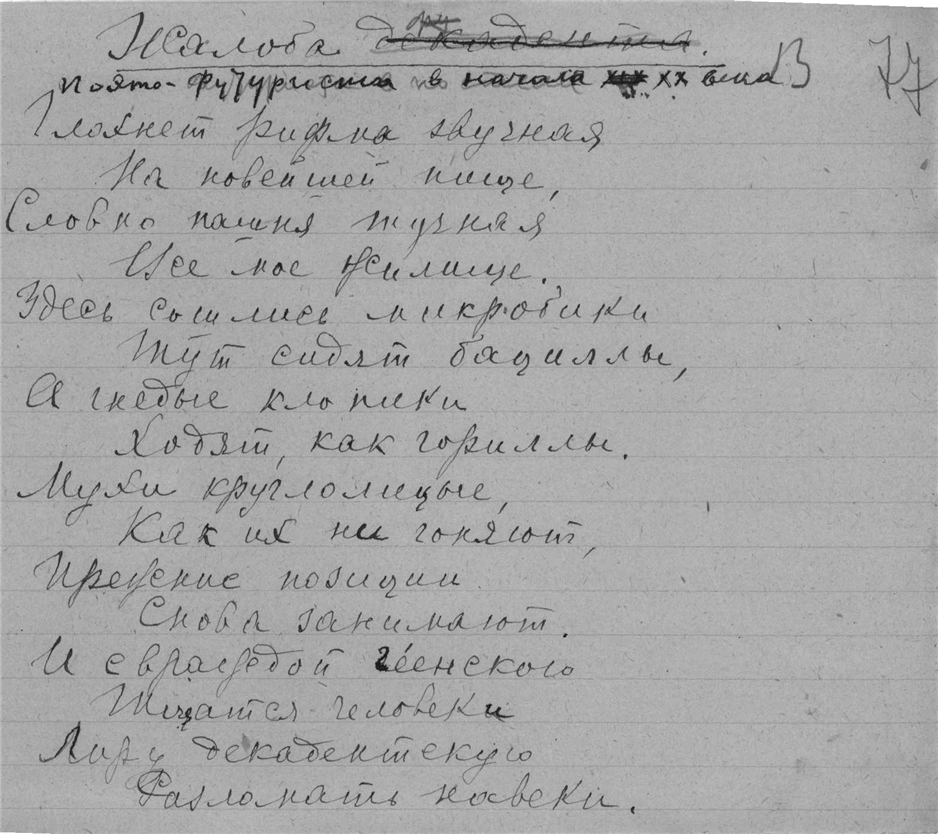 Жалоба декадента.
поэта-футуриста в начале XIX XX века
13 77
Глохнет рифма звучная
На новейшей пище,
Словно пашня тучная
Все мое жилище.
Здесь сошлись микробики
Тут сидят бациллы,
А гнедые клопики
Ходят, как гориллы.
Мухи круглолицые,
Как их ни гоняют,
Прежние позиции
Снова занимают.
И с враждой геенского
Тщатся человеки
Лиру декадентскую
Разломать навеки.